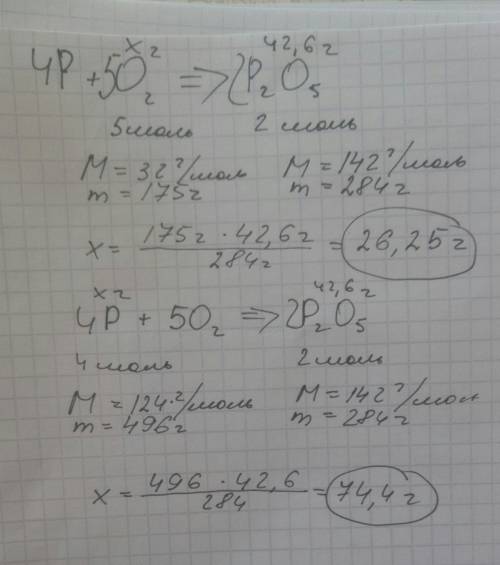 x г 42,6 г
4P + 5O₂ => 2P₂O₅
5 моль 2 моль
M = 32 г/моль M = 142 г/моль
m = 175 г m = 284 г
x = 175 г · 42,6 г / 284 г = 26,25 г
x г 42,6 г
4P + 5O₂ => 2P₂O₅
4 моль 2 моль
M = 124 г/моль M = 142 г/моль
m = 496 г m = 284 г
x = 496 · 42,6 / 284 = 74,4 г